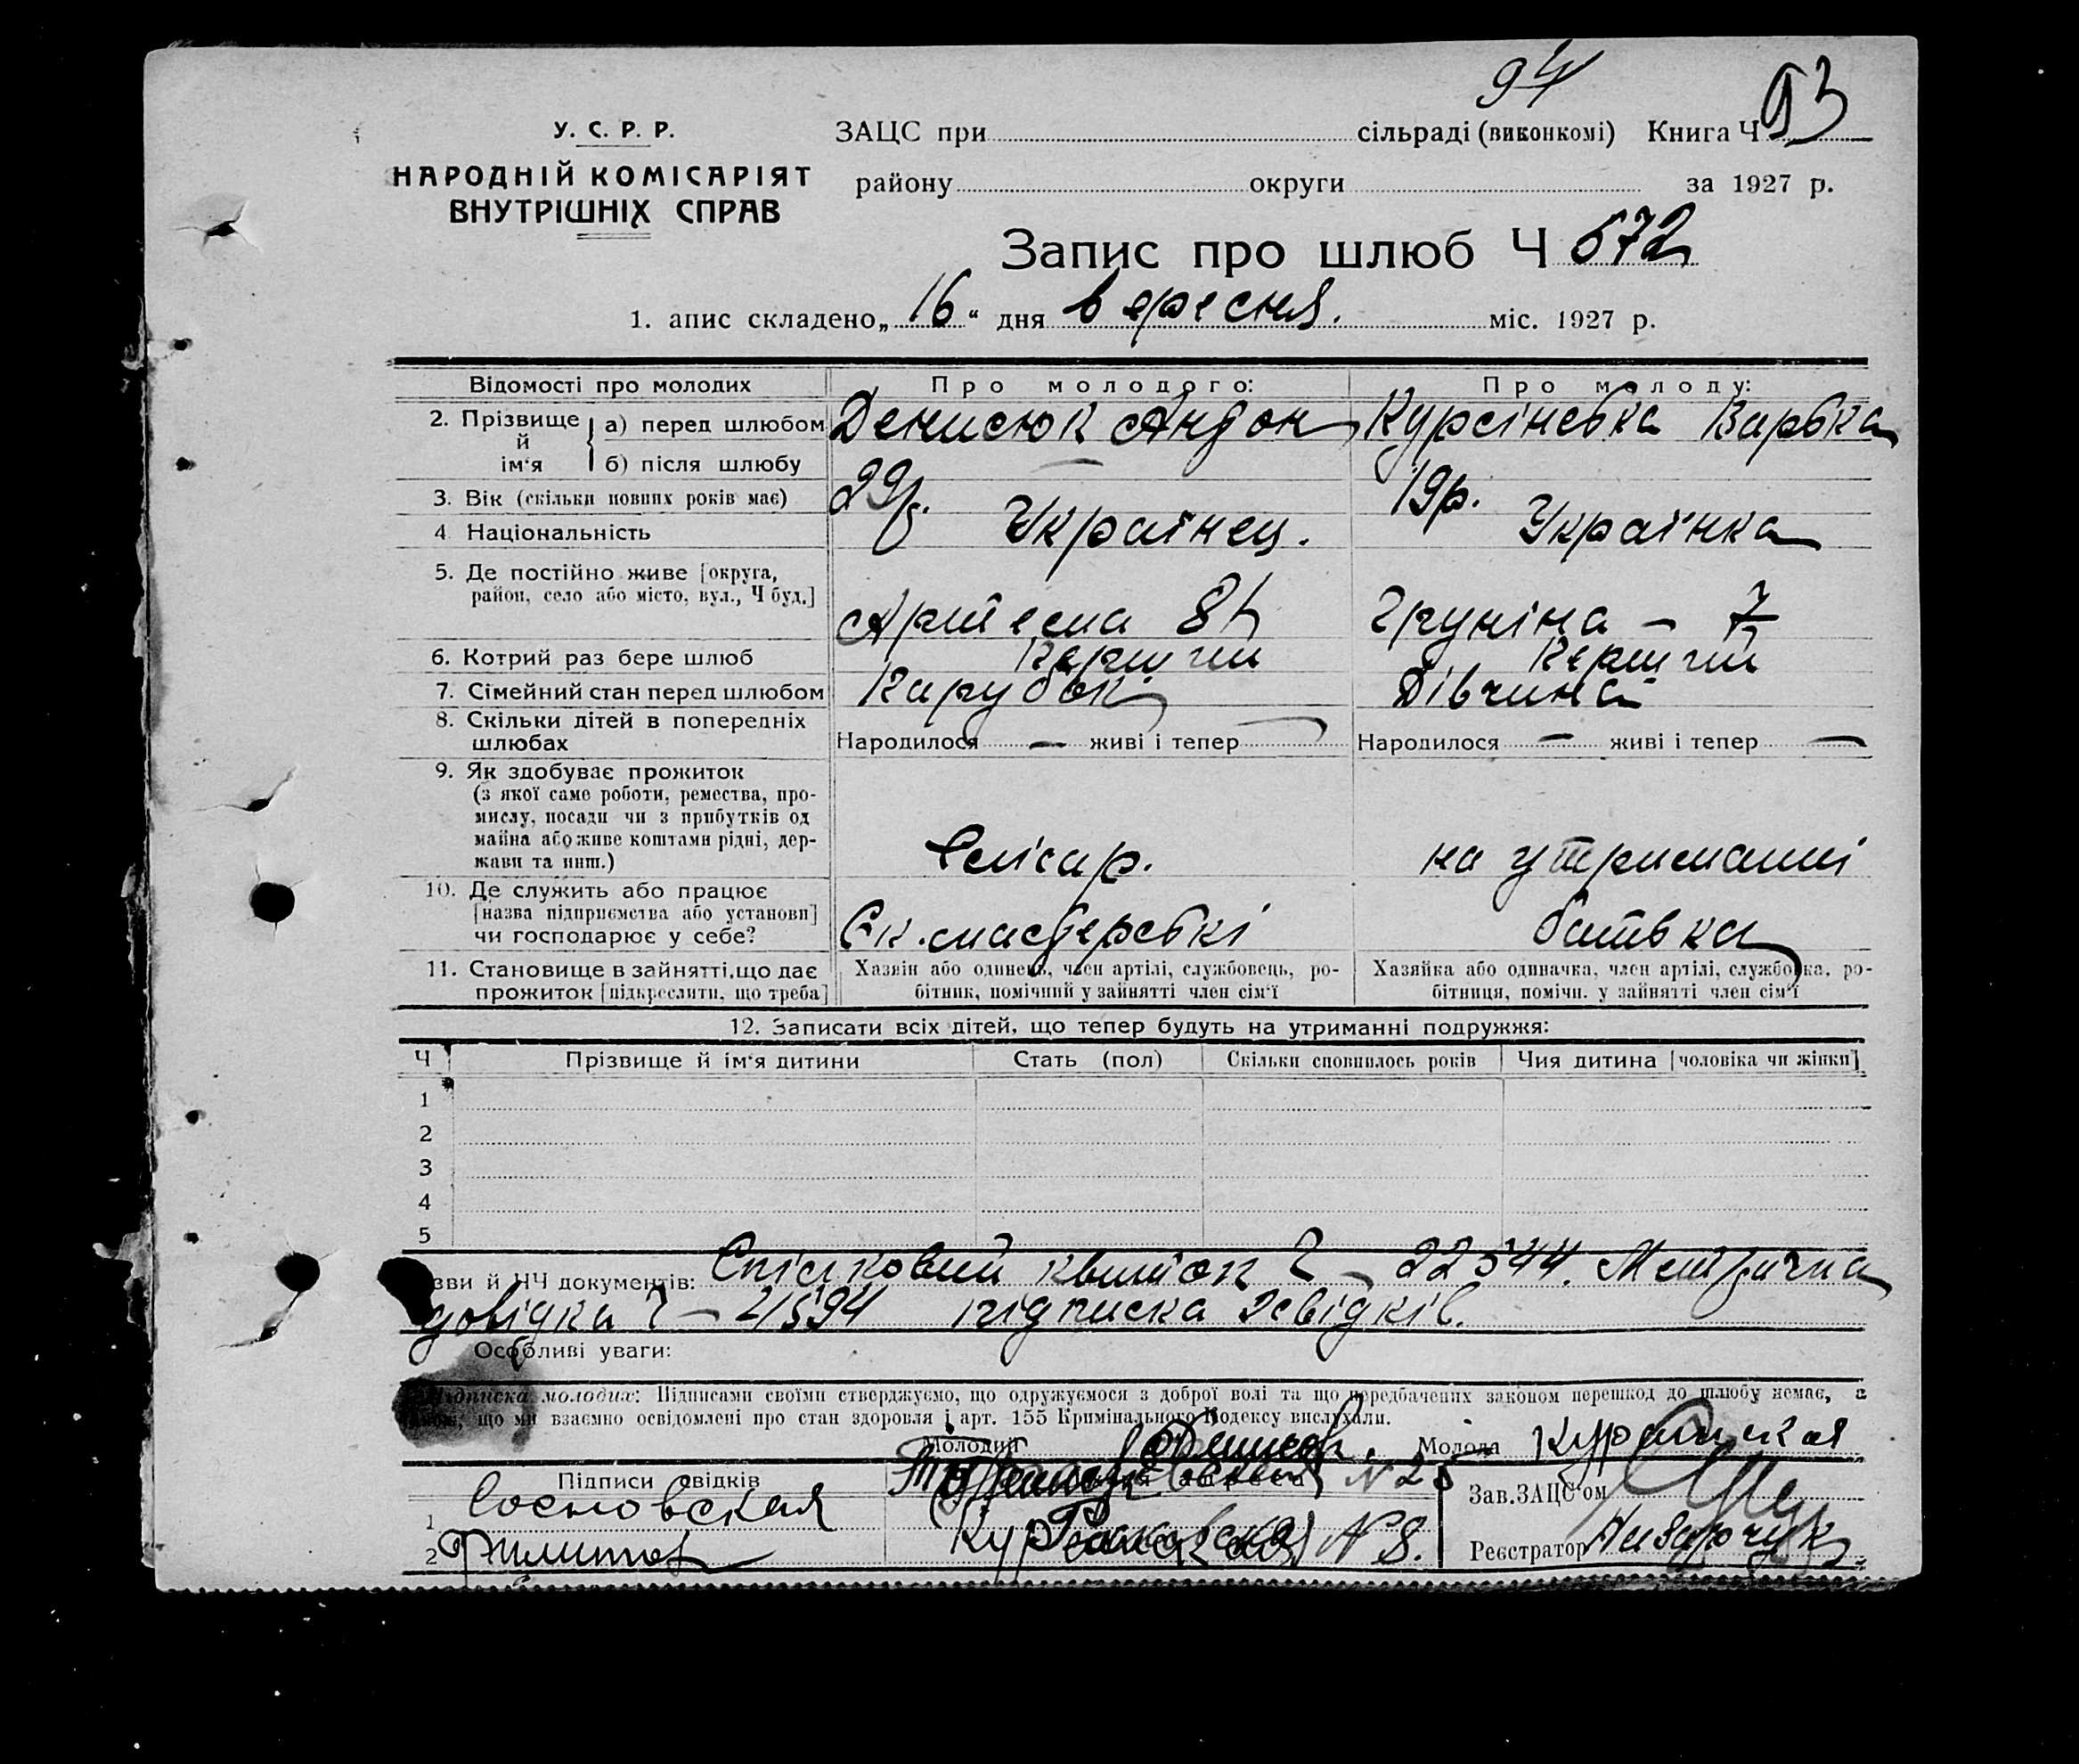 94
93
У. С. Р. Р.
НАРОДНІЙ КОМІСАРІЯТ
ВНУТРІШНІХ СПРАВ
ЗАЦС при сільраді (виконкомі) Книга Ч
району округи за 1927 р.
Запис про шлюб Ч 572
1. апис складено „16“ дня вересня. міс. 1927 р.
Відомості про молодих Про молодого: Про молоду:
2. Прізвище й ім‘я а) перед шлюбом Денисюк Андон Курсінська Варька
б) після шлюбу
3. Вік (скільки повних років має) 29р. 19р.
4. Національність Українец. Українка
5. Де постійно живе [округа,
район, село або місто, вул., Ч буд.] Артема 8 - 7
6. Котрий раз бере шлюб Перший Перший
7. Сімейний стан перед шлюбом Парубок Дівчина
8. Скільки дітей в попередніх
шлюбах Народилося — живі і тепер — Народилося — живі і тепер —
9. Як здобуває прожиток
(з якої саме роботи, ремества, про-
мислу, посади чи з прибутків од
майна або живе коштами рідні, дер-
жави та инш.) Слісар. на утриманні
10. Де служить або працює
[назва підприємства або установи]
чи господарює у себе? батька
11. Становище в зайнятті, що дає
прожиток [підкреслити, що треба]
Хазяїн або одинець, член артілі, службовець, ро-
бітник, помічний у зайнятті член сім‘ї
Хазяйка або одиначка, член артілі, службовка, ро-
бітниця, помічн. у зайнятті член сім‘ї
12. Записати всіх дітей, що тепер будуть на утриманні подружжя:
Ч Прізвище й ім‘я дитини Стать (пол) Скільки сповнилось років Чия дитина [чоловіка чи жінки]
1
2
3
4
5
зви й ЧЧ документів: Спілковий квиток Ч - 22544. Метрична
довідка Ч - 21594 підписка свідків.
Особливі уваги:
Підписка молодих: Підписами своїми стверджуємо, що одружуємося з доброї волі та що передбачених законом перешкод до шлюбу немає, а
що ми взаємно освідомлені про стан здоровля і арт. 155 Кримінального Кодексу вислухали.
Молодий Молода
Підписи свідків № 25 Зав. ЗАЦС‘ом
1 Сосновская
2 № 8. Реєстратор Назарчук